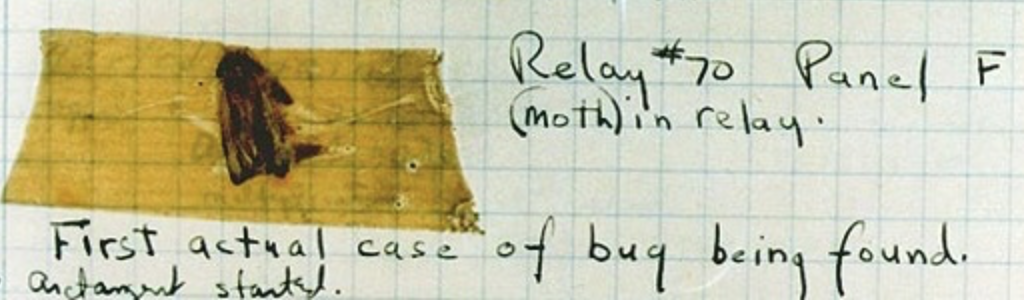 Relay #70 Panel F
(moth) in relay.
First actual case of bug being found.
started.